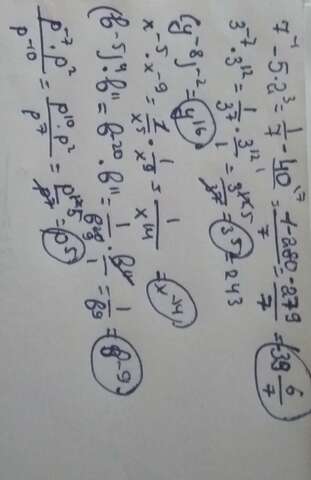 7⁻¹ - 5·2³ = 1/7 - 40/1 = (1-280)/7 = -279/7 = -39 6/7
3⁻⁷·3¹² = 1/3⁷ · 3¹²/1 = 3¹²/3⁷ = 3⁵ = 243
(y⁻⁸)⁻² = y¹⁶
x⁻⁵·x⁻⁹ = 1/x⁵ · 1/x⁹ = 1/x¹⁴ = x⁻¹⁴
(b⁻⁵)⁴·b¹¹ = b⁻²⁰·b¹¹ = 1/b²⁰ · b¹¹/1 = 1/b⁹ = b⁻⁹
p⁻⁷·p²/p⁻¹⁰ = p¹⁰·p²/p⁷ = p¹²/p⁷ = p⁵